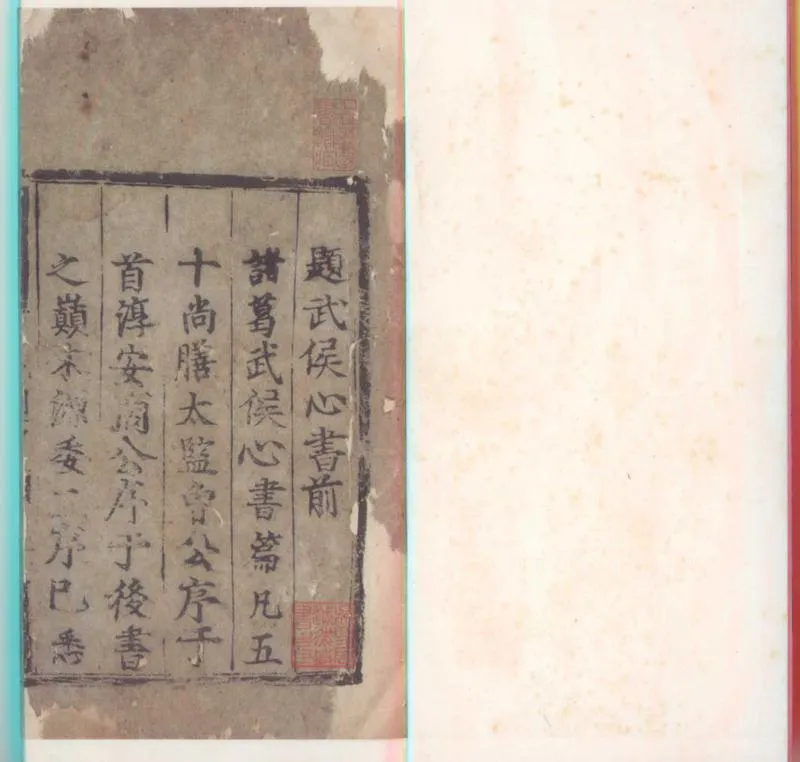 題武侯心書前
諸葛武侯心書篇凡五
十尚膳太監魯公序于
首淳安商公序于後書
之巔末源委二序已悉